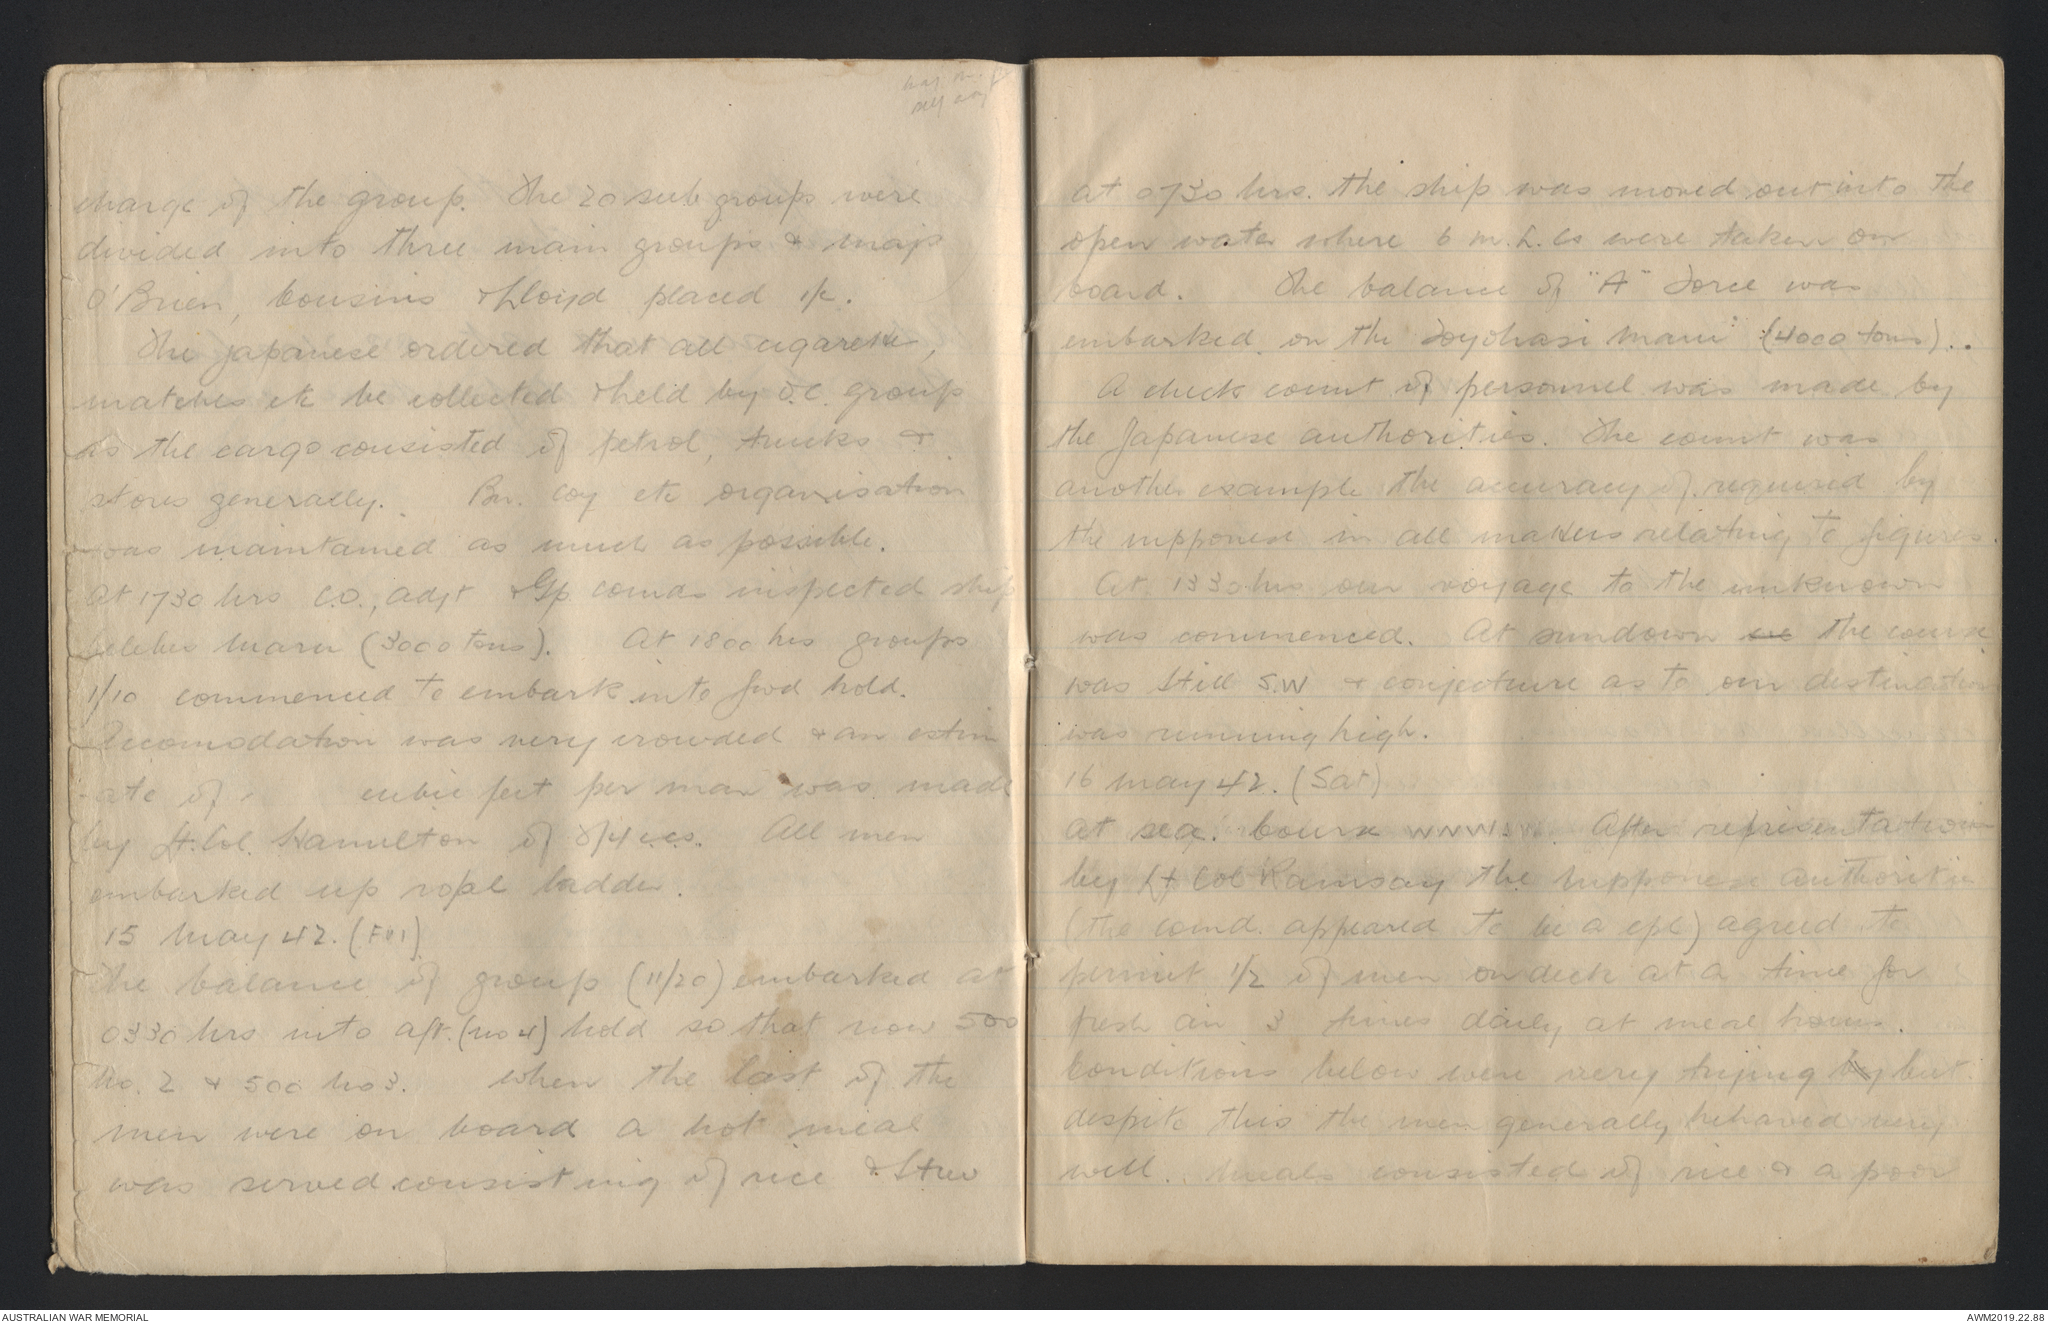 charge of the group. The 20 sub groups were
divided into three main groups & Majs
O'Brien, Cousins & Lloyd placed i/c.
The Japanese ordered that all cigarettes,
matches etc be collected & held by O.C. group
as the cargo consisted of petrol, trucks &
stores generally. Bn. Coy etc organisation
was maintained as much as possible.
At 1730 hrs C.O., adjt & Gp comds inspected ship
Celebes Maru (3000 tons). At 1800 hrs groups
1/10 commenced to embark into fwd hold.
Accomodation was very crowded & an estim
-ate of cubic feet per man was made
by Lt. Col. Hamilton of 2/4 CCS. All men
embarked up rope ladder.
15 May 42. (Fri)
The balance of group (11/20) embarked at
0330 hrs into aft. (No 4) hold so that now 500
No. 2 & 500 No 3. When the last of the
men were on board a hot meal
was served consisting of rice & Stew
at 0730 hrs. The ship was moved out into the
open water where 6 M.L.Cs were taken on
board. The balance of "A" Force was
embarked on the Toyohasi Maru (4000 tons)..
A check count of personnel was made by
the Japanese authorities. The count was
another example the accuracy of required by
the Nipponese in all matters relating to figures.
At 1330 hrs our voyage to the unknown
was commenced. At sundown the course
was still S.W & conjecture as to our destination
was running high.
16 May 42. (Sat)
At sea. Course After representations
by Lt Col Ramsay the Nipponese authorities
(the comd. appeared to be a cpl) agreed to
permit 1/2 of men on deck at a time for
fresh air 3 times daily at meal hours.
Conditions below were very trying but
despite this the men generally behaved very
well. Meals consisted of rice & a poor
AUSTRALIAN WAR MEMORIAL
AWM2019.22.88